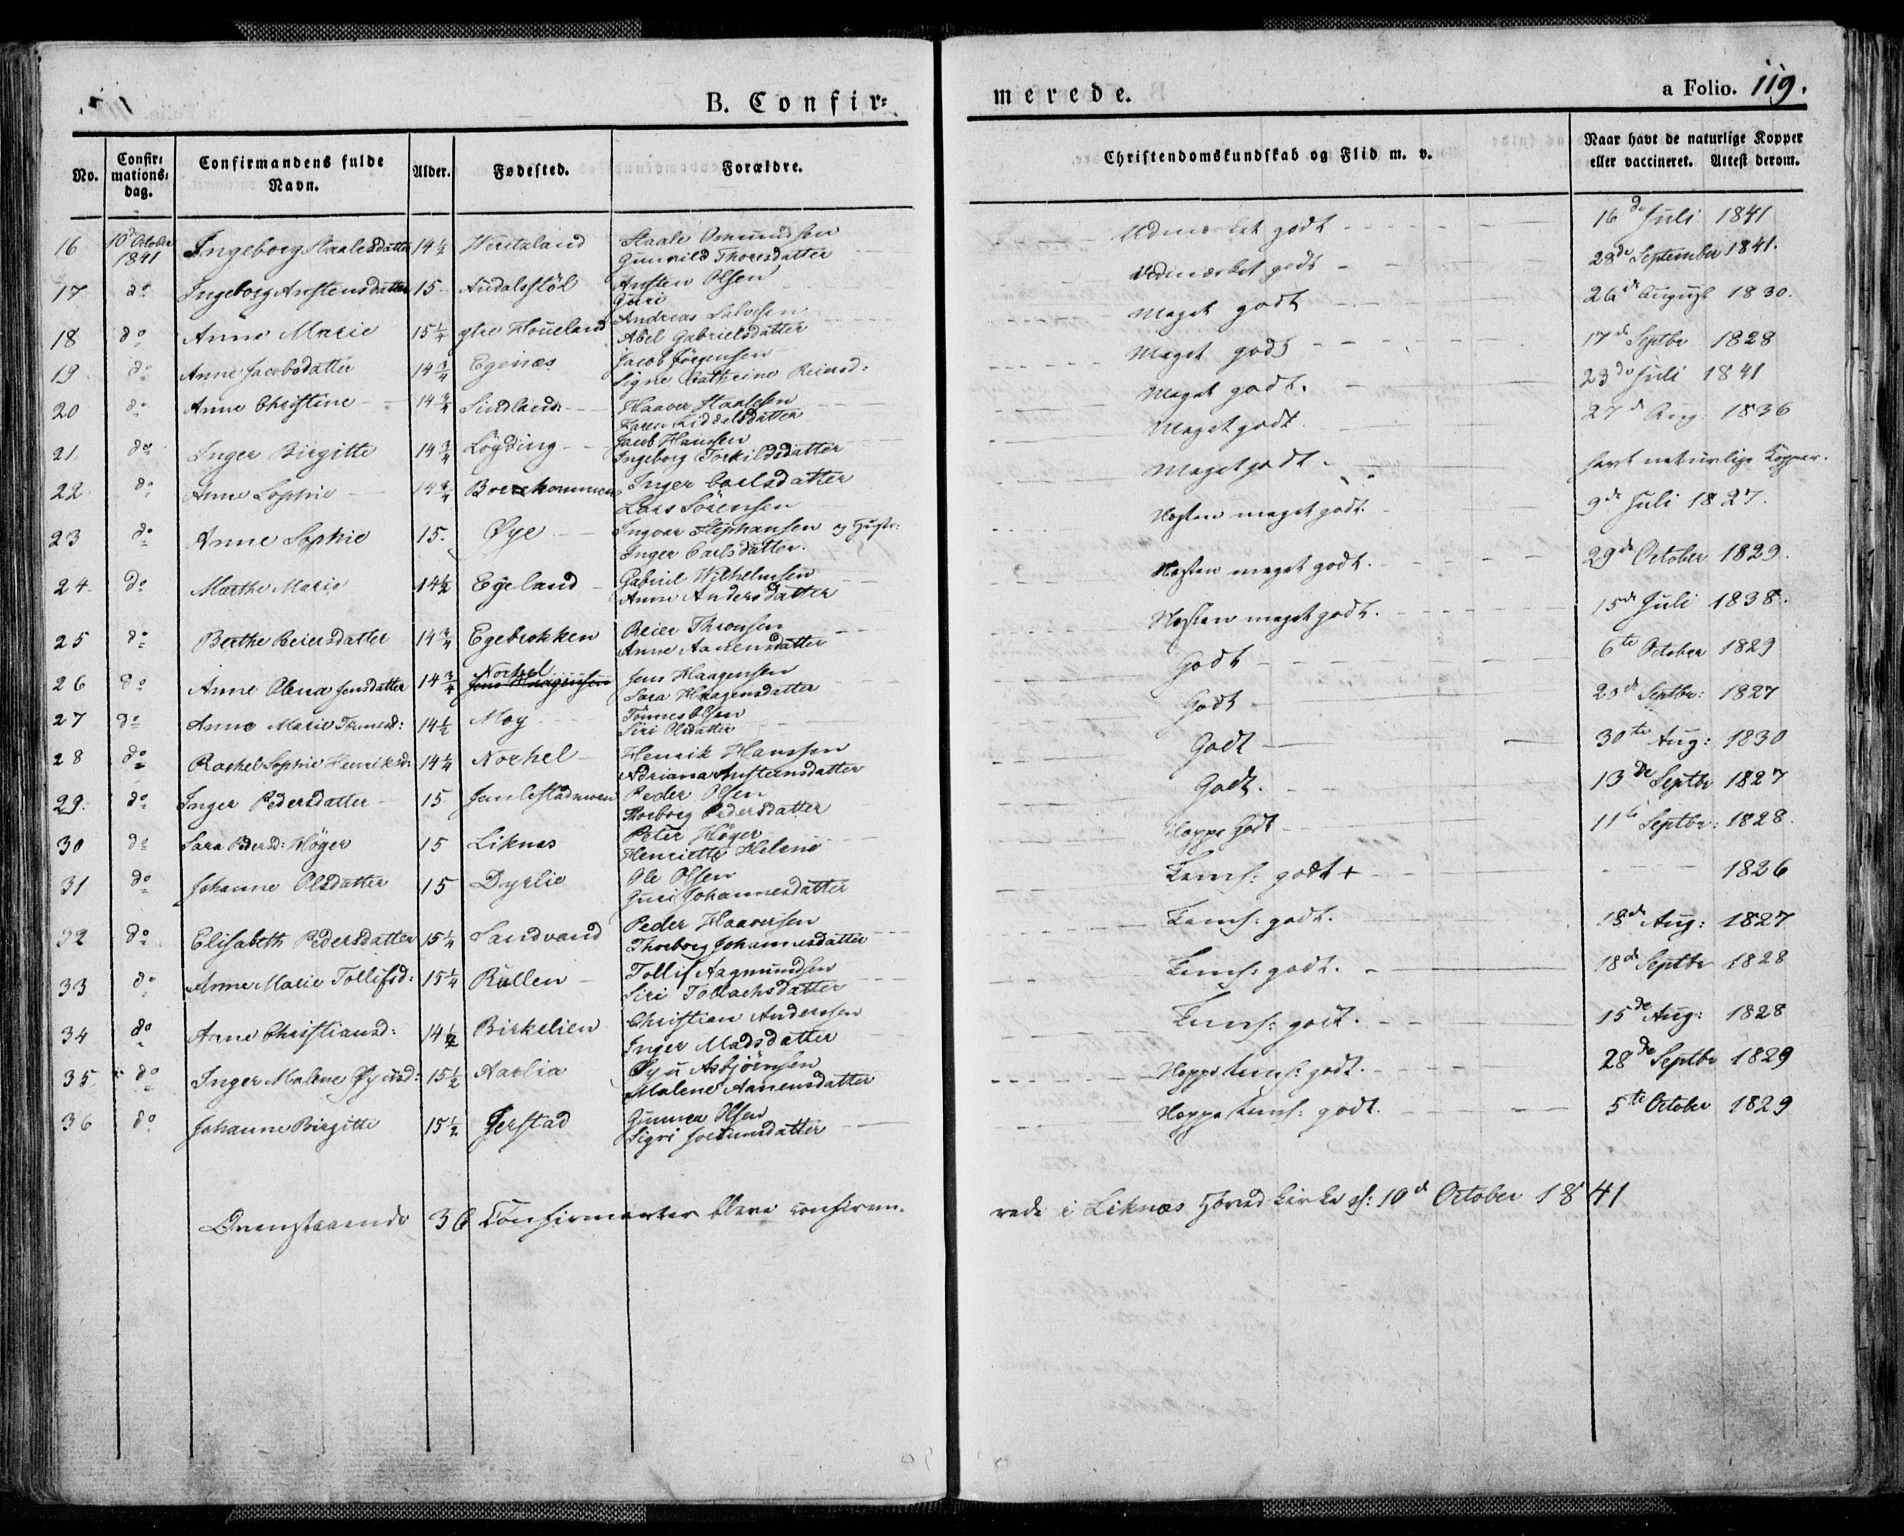 B. Confir=
merede.
a Folio. 119.
No.
Confir=
mations=
dag.
Confirmandens fulde
Navn.
Alder.
Fødested.
Forældre.
Christendomskundskab og Flid m. v.
Naar havt de naturlige Kopper
eller vaccineret. Attest derom.
16 10d October 1841 Ingeborg Staalesdatter 14½ Staale Osmundsen
Gunnild Thoresdatter
Udmærket godt 16de Juli 1841
17 do Ingeborg Anstensdatter 15 Ansten Olsen
Guri
Udmærket godt 28de September 1841.
18 do Anne Marie 15¼ ytre Houeland Andreas Salvesen
Abel Gabrielsdatter
Meget godt 26de August 1830.
19 do Anne Jacobsdatter 14¾ Egenæs Jacob Jørgensen
Signe Cathrine Reinsd:
Meget godt 17de Septbr 1828
20 do Anne Christine 14¾ Sindland Haaver Staalesen
Karen Kiddelsdatter
Meget godt. 23de Juli 1841
21 do Inger Birgitte 14¾ Løgding Jacob Hansen
Ingeborg Torkildsdatter
Meget godt. 27de Aug. 1836
22 do Anne Sophie 14¾ Inger Carlsdatter
Lars Sørensen
Meget godt. havt naturlige Kopper.
23 do Anne Sophie 15 Øye Ingvar Stephansen og Hustr:
Inger Carlsdatter.
Næsten meget godt. 9de Juli 1827.
24 do Marthe Marie 14½ Egeland Gabriel Wilhelmsen
Anne Andersdatter
Næsten meget godt. 29de October 1829.
25 do Berthe Reiersdatter 14¾ Egebrokken Reier Thronsen
Anne Aanensdatter
Næsten meget godt. 15de Juli 1838.
26 do Anne Olena Jensdatter 14¾ Norhel
Jens Haagensen
Jens Haagensen
Sara Haagensdatter
Godt 6te October 1829
27 do Anne Marie Tønnesd: 14½ Moy Tønnes Olsen
Siri Olsdatter
Godt Septbr: 1827
28 do Rachel Sophie Henriksd: 14¼ Norhel Henrik Hanssen
Adriana Anstensdatter
Godt 30te Aug: 1830
29. do Inger Pedersdatter 15 Peder Olsen
Thorborg Pedersdatter
Godt. 13de Septbr 1827
30 do Sara Pedersd: Høyer 15 Liknes Peter Høyer
Henriette Helene
Noppe Godt 11te Septbr: 1828.
31 do Johanne Olsdatter 15 Dyrlie Ole Olsen
Guri Johannesdatter
Tems: godt + 1826
32 do Elisabeth Pedersdatter 15¼ Sandvand Peder Haaversen
Thorborg Johannesdatter
Tems: godt. 18de Aug: 1827
33 do Anne Marie Tollifsd: 15¼ Røllen Tollif Aagmundsen
Siri Tollachsdatter
Tems: godt. 18de Septbr 1828
34 do Anne Christiansd: 14½ Birkelien Christian Andersen
Inger Madsdatter
Tems: godt. 15de Aug: 1828
35 do Inger Malene Øyusd: 15½ Aaslia Øyu Asbjørnsen
Malene Aanensdatter
Noppe tems: godt. 28de Septbr 1829
36 do Johanne Birgitte 15½ Jerstad Gunnea Olsen
Sigri
Noppe tems: godt. 5te October 1829
Ovenstaaende 36 Confirmanter bleve confirme=
rede i Liknæs Hovedkirke d: 10de October 1841